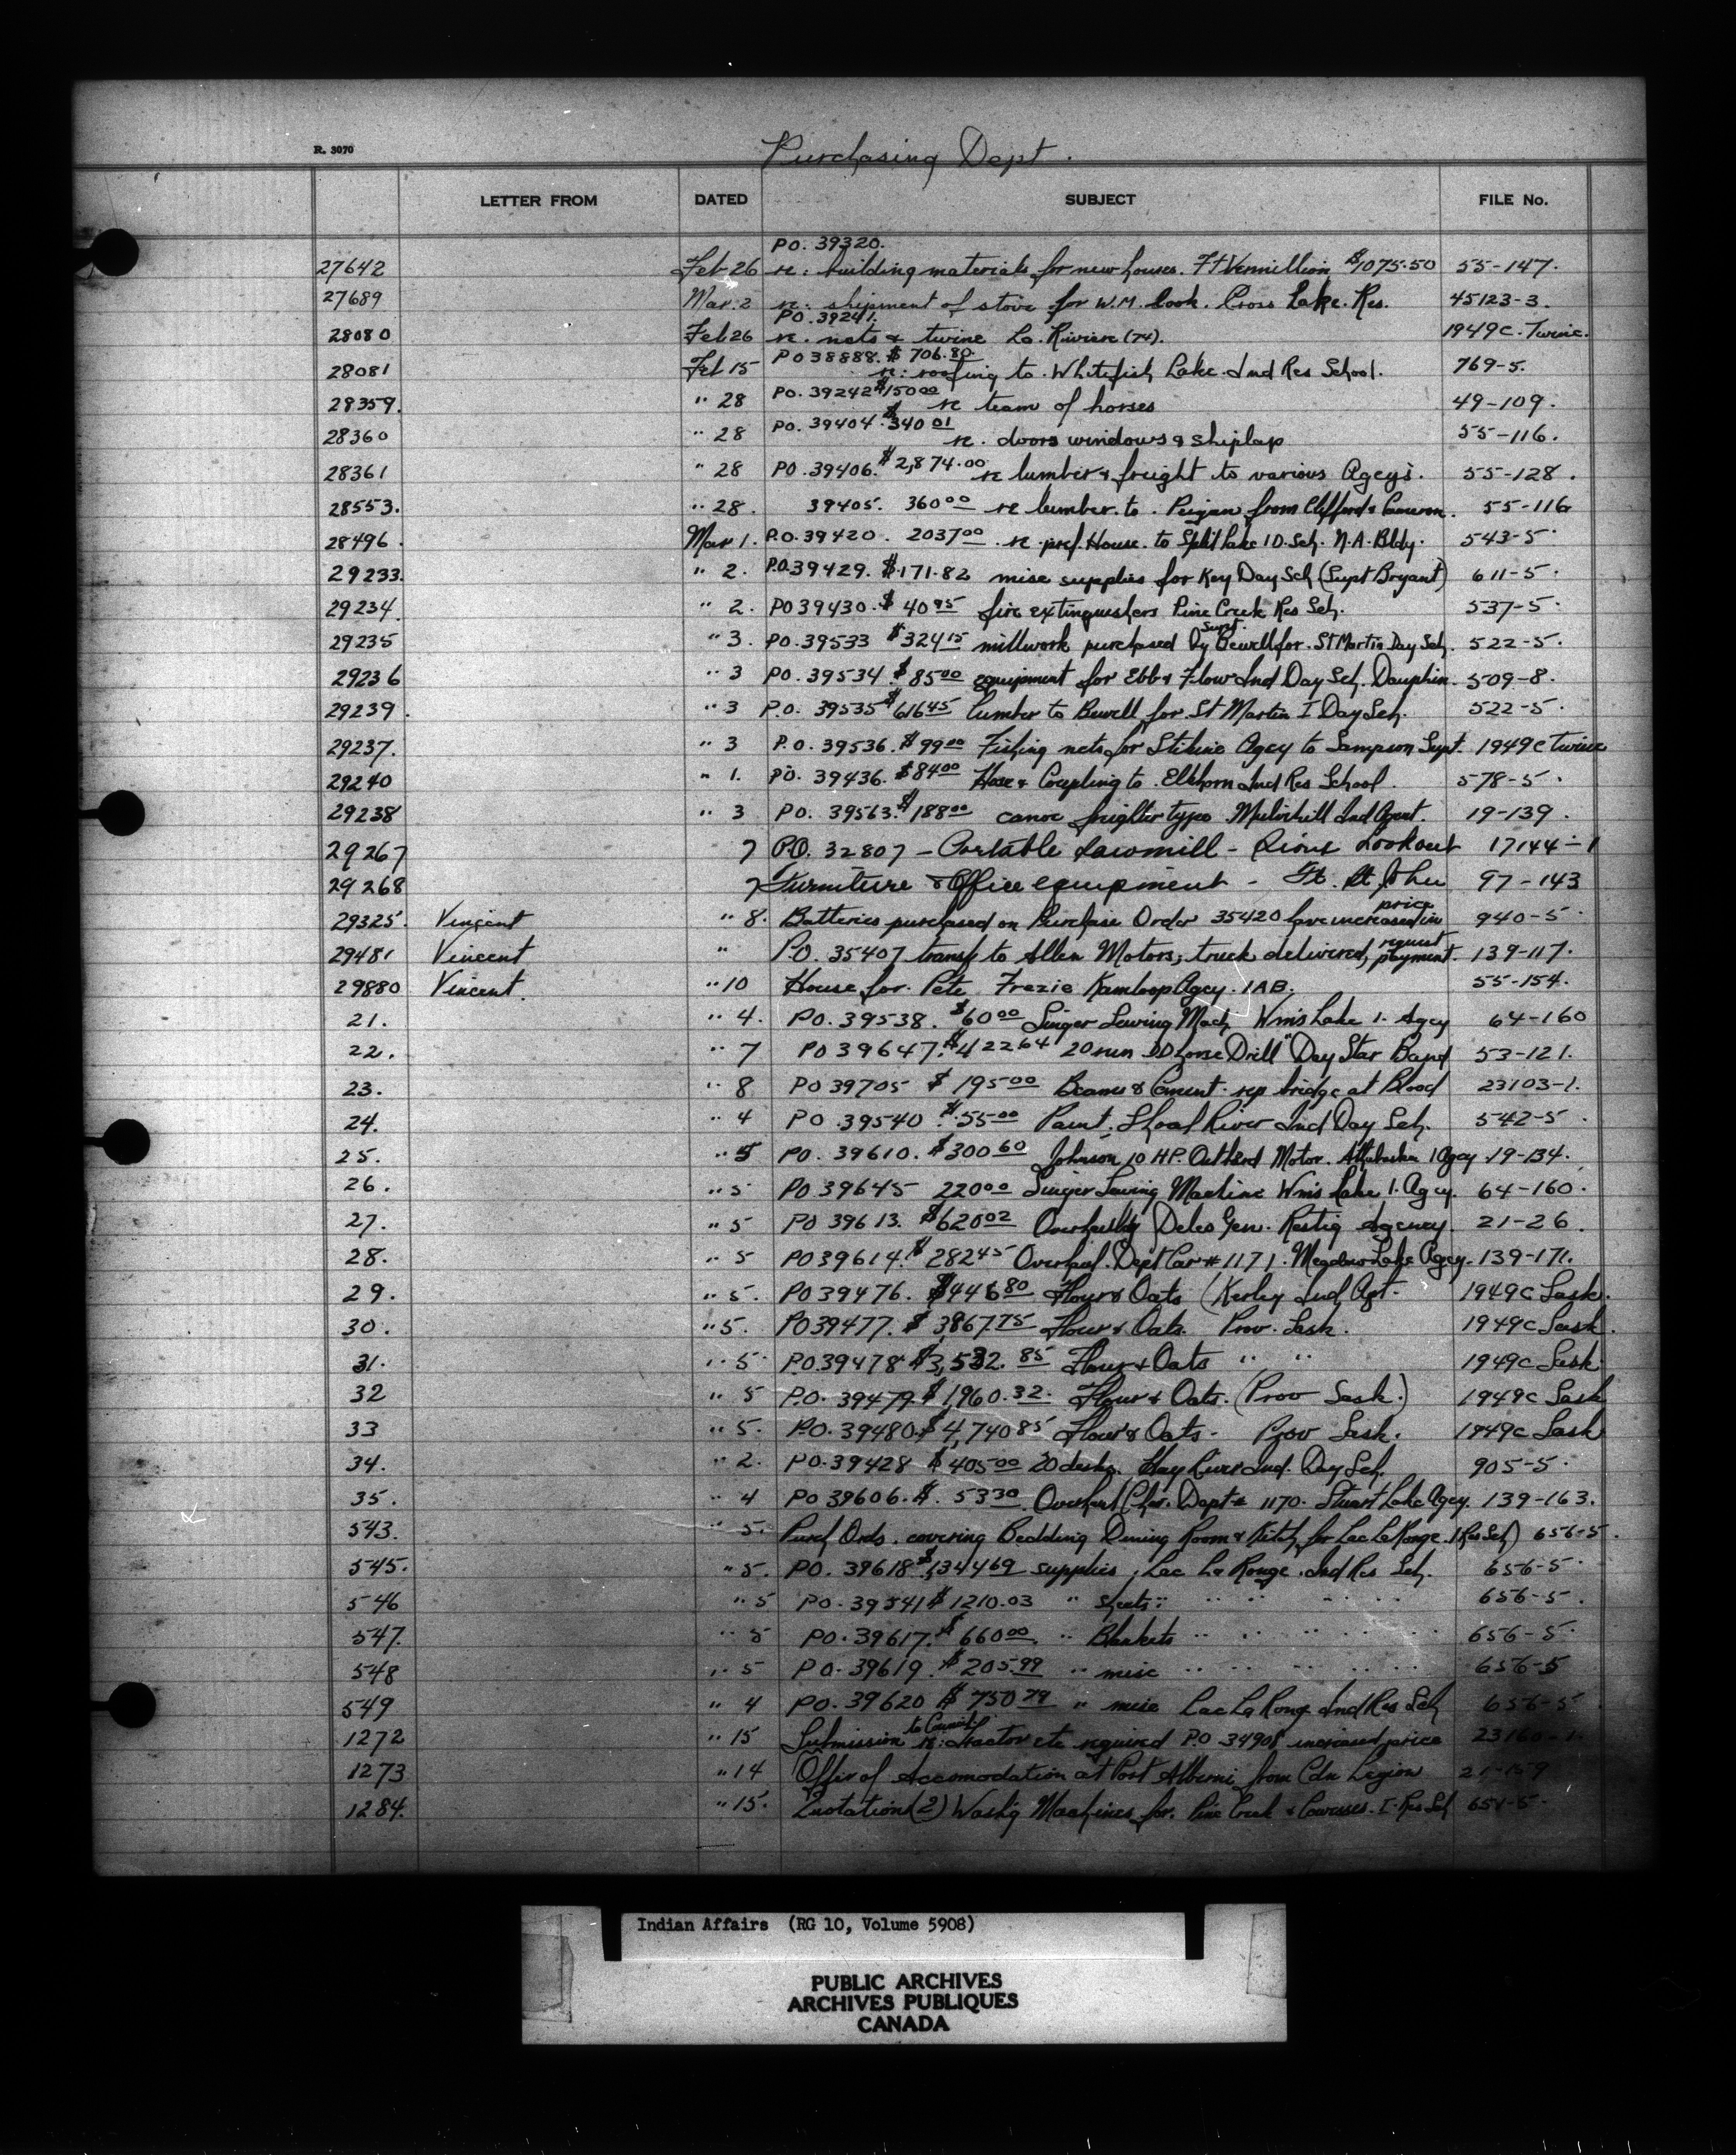 R. 3070
Purchasing Dept.
LETTER FROM DATED SUBJECT FILE No.
PO. 39320.
27642 Feb 26 re: building materials for new houses. Ft Vermillion $1075.50 55-147.
27689 Mar. 2 re: shipment of stove for W.M. Cook. Cross Lake. Res. 45123-3.
PO. 39241.
28080 Feb 26 re. nets & twine La. Riviere (74). 1949C. Twine.
PO 38888. $ 706.80.
28081 Feb 15 re: roofing to. Whitefish Lake. Ind Res School. 769-5.
PO. 39242 $150 00
28359. " 28 re team of horses 49-109.
PO. 39404. $340 01
28360 " 28 re. doors windows & shiplap 55-116.
28361 " 28 PO. 39406. $2,874.00 re lumber & freight to various Agcys. 55-128.
28553. " 28. 39405. 360 00 re lumber. to. Peigan from Clifford & Cameron. 55-116
28496. Mar 1. P.O. 39420. 2037 00. re pref. House. to Split Lake I D. Sch. N.A. Bldg. 543-5.
29233. " 2. P.O. 39429. $.171.82 misc supplies for Key Day Sch (Supt Bryant) 611-5.
29234. " 2. PO 39430. $ 40 95 fire extinguishers Pine Creek Res Sch. 537-5.
29235 " 3. PO. 39533 $324 15 millwork purchased by Supt. Bewell for. St Martin Day Sch. 522-5.
29236 " 3 PO. 39534. $85 00 equipment for Ebb & Flow Ind Day Sch. Dauphin. 509-8.
29239. " 3 P.O. 39535 $616 45 lumber to Bewell for St Martin I Day Sch. 522-5.
29237. " 3 P.O. 39536. $99 00 Fishing nets for Stikine Agcy to Sampson Supt. 1949C Twine
29240 " 1. PO. 39436. $84 00 Hose & Coupling to. Elkhorn Ind Res School. 578-5.
29238 " 3 PO. 39563. $188 00 canoe freighter type. Mulvihill Ind Agent. 19-139.
29267 7 P.O. 32807 - Portable Sawmill - Sioux Lookout 17144-1
29268 7 Furniture & Office equipment - Ft. St John 97-143
29325. Vincent " 8. Batteries purchased on Purchase Order 35420 have increased in price 940-5.
29481 Vincent " P.O. 35407 transf to Allen Motors; truck delivered, request payment. 139-117.
29880 Vincent. " 10 House for. Pete Frezie Kamloop Agcy. IAB. 55-154.
21. " 4. PO. 39538. $60 00 Singer Sewing Mach Wms Lake I. Agcy 64-160
22. " 7 PO 39647. $422 64 20 run Horse Drill "Day Star Band 53-121.
23. " 8 PO 39705 $ 195 00 Beams & Cement. rep bridge at Blood 23103-1.
24. " 4 PO. 39540 $.55 00 Paint. Shoal River Ind Day Sch. 542-5.
25. " 5 PO. 39610. $300 60 Johnson 10 HP. Outbrd Motor. Athabaska I Agcy. 19-134.
26. " 5 PO 39645 220 00 Singer Sewing Machine Wms Lake I. Agcy. 64-160.
27. " 5 PO 39613. $620 02 Overhauling Delco Gen. Restig Agency. 21-26.
28. " 5 PO 39614. $ 282 45 Overhaul. Dept Car # 1171. Meadow Lake Agcy. 139-171.
29. " 5. PO 39476. $446 80 Flour & Oats (Kerley Ind Agt. 1949C Sask.
30. " 5. PO 39477. $ 3867.75 Flour & Oats. Prov. Sask. 1949C Sask.
31. " 5 P.O. 39478 $3,532. 85 Flour & Oats " " 1949C Sask.
32 " 5 P.O. 39479. $ 1960.32. Flour & Oats. (Prov Sask.) 1949C Sask
33 " 5. P.O. 39480. $4,740 85 Flour & Oats - Prov Sask. 1949C Sask
34. " 2. PO. 39428 $ 405 00 20 desks. Hay River Ind. Day Sch. 905-5.
35. " 4 PO 39606. $. 53 30 Overhaul Dept # 1170. Stuart Lake Agcy. 139-163.
543. " 5. Purch Ords. covering Bedding Dining Room & Kitch for Lac La Ronge. I Res Sch) 656-5.
545. " 5. PO. 39618 $1344 69 supplies, Lac La Ronge. Ind Res Sch. 656-5.
546 " 5 PO. 39541 $ 1210.03 " Sheets " " " " " " 656-5.
547. " 5 PO. 39617. $ 660 00. " Blankets " " " " " " 656-5.
548 " 5 PO. 39619. $ 205.99 " misc " " " " " " 656-5
549 " 4 PO. 39620 $ 750 79 " misc Lac La Ronge Ind Res Sch 656-5
1272 " 15 Submission to Council re: Tractor etc required P.O 34908 increased price 23160-1.
1273 " 14 Offer of Accomodation at Port Alberni from Cdn Legion
1284. " 15. Quotation (2) Wash'g Machines for. Pine Creek & Cowesses. I. Res Sch 651-5.
Indian Affairs (RG 10, Volume 5908)
PUBLIC ARCHIVES
ARCHIVES PUBLIQUES
CANADA